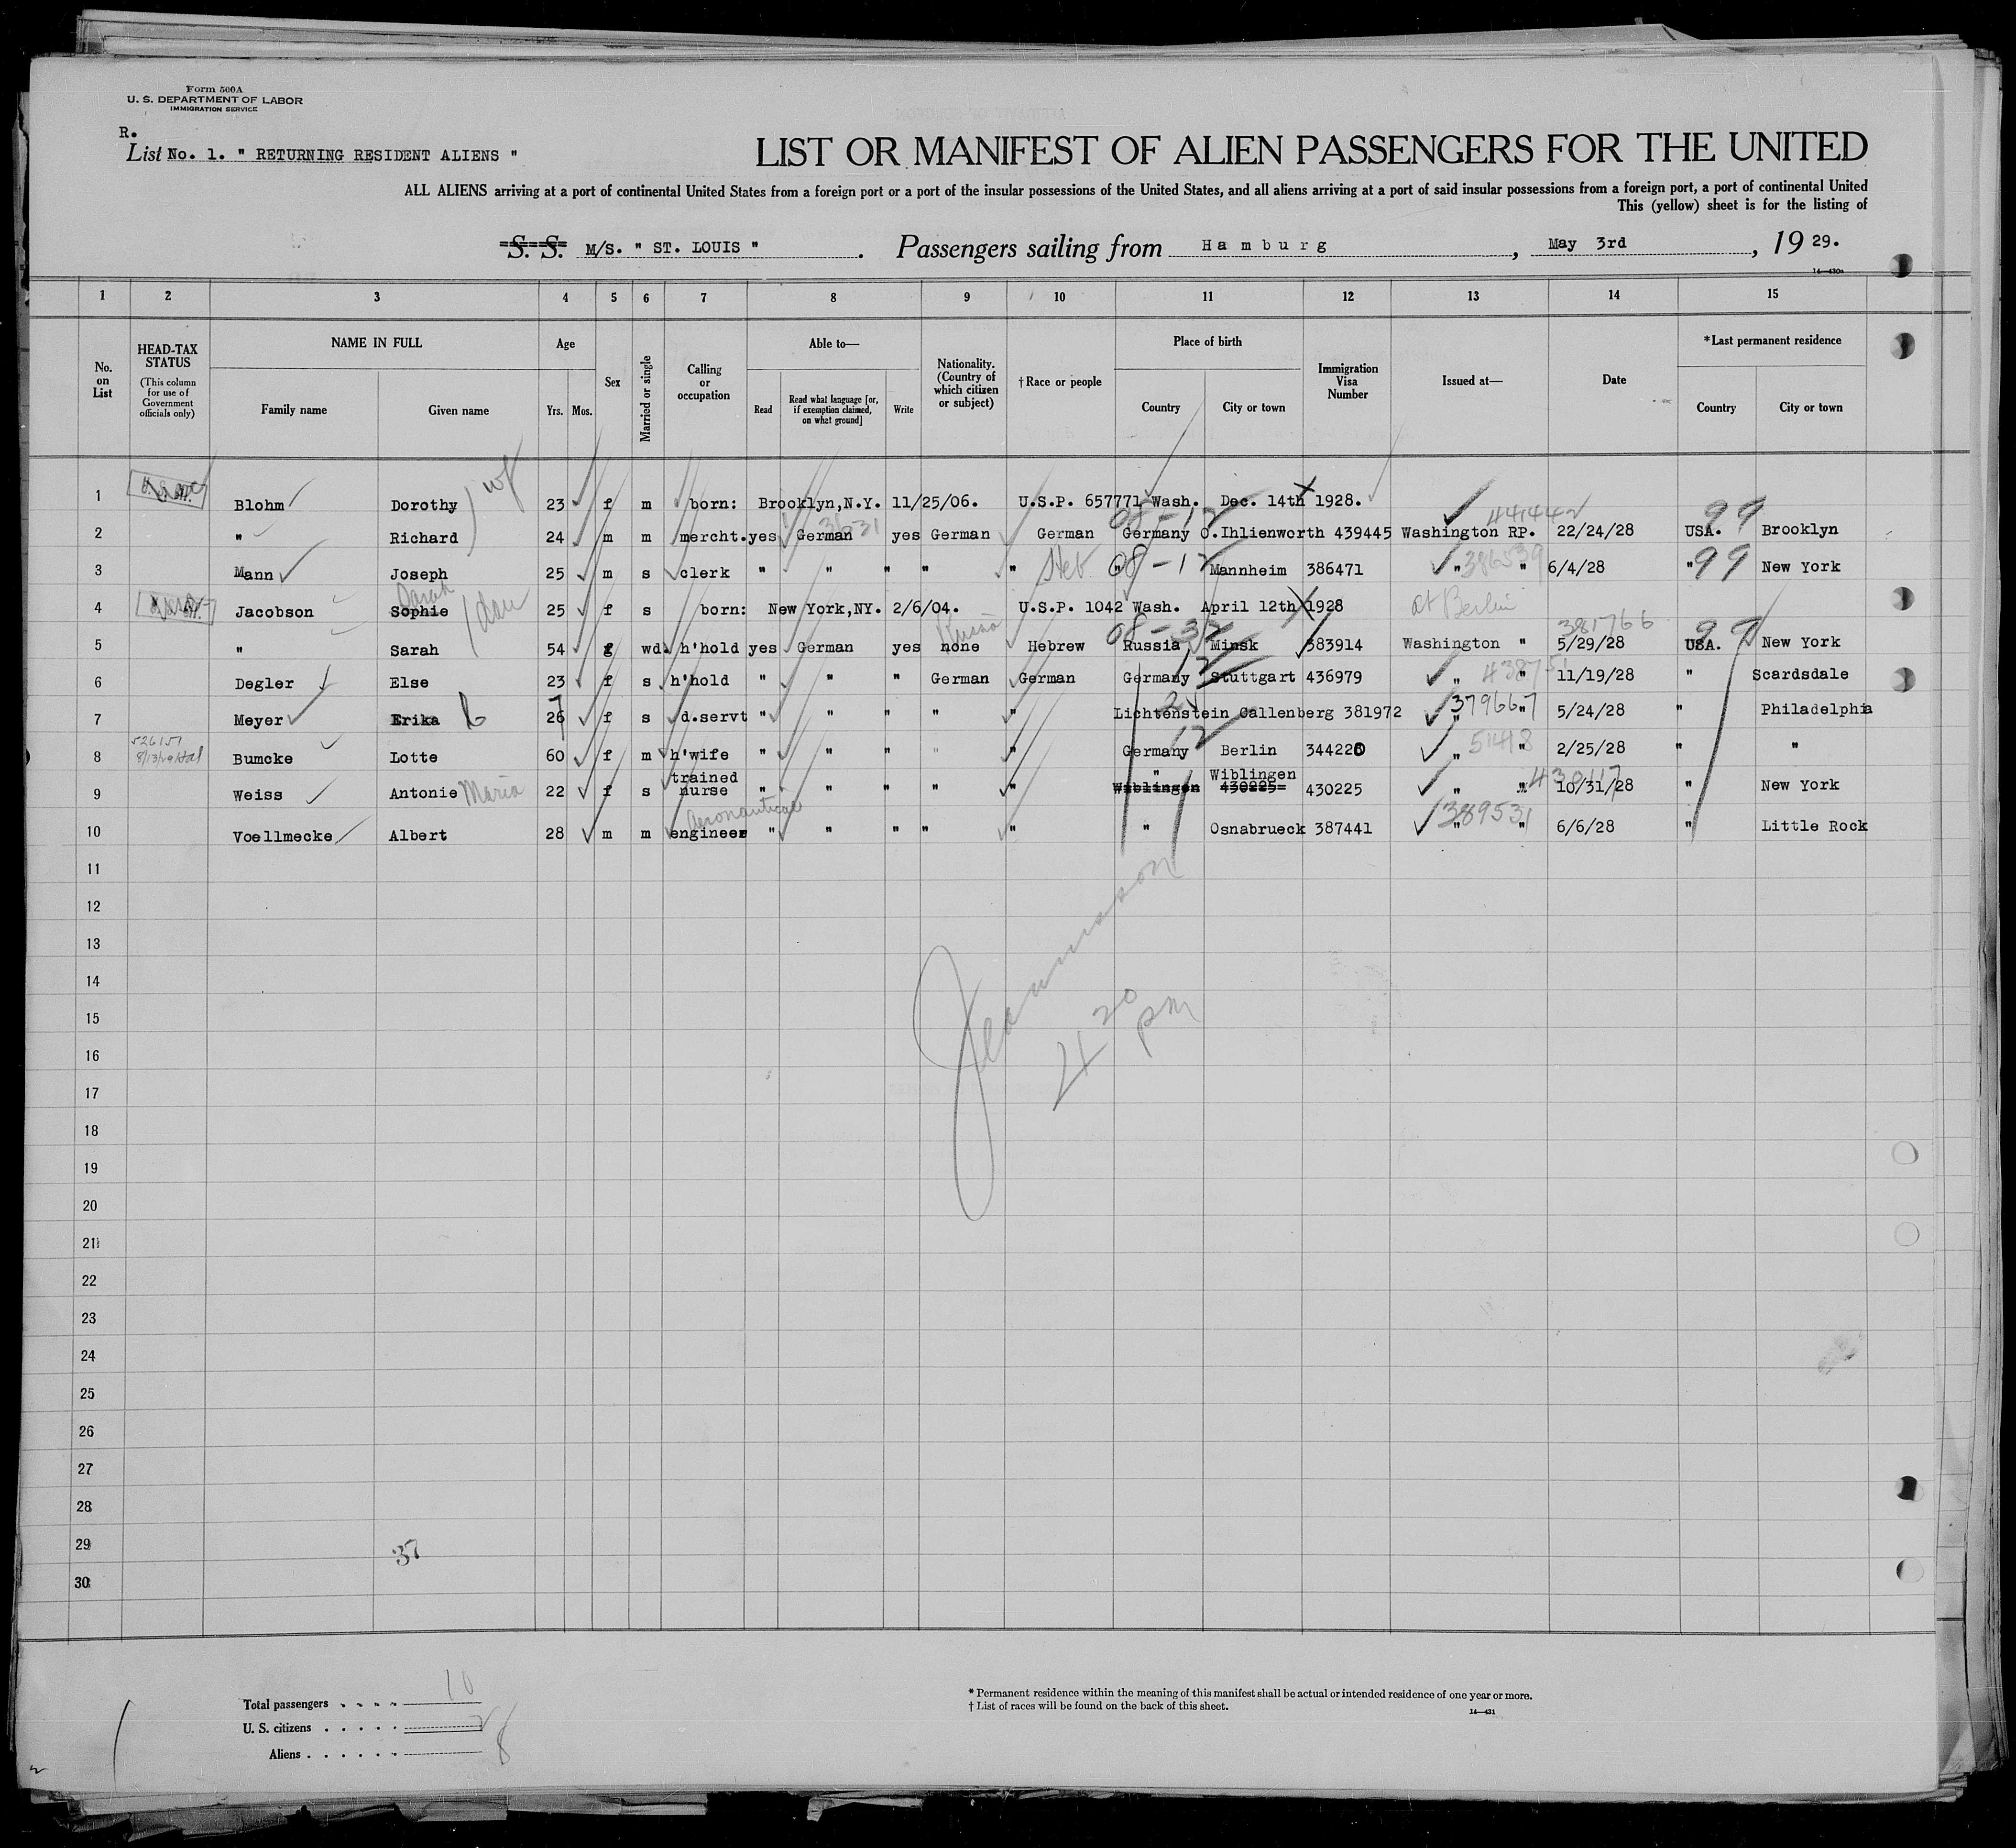 Form 500A
U. S. DEPARTMENT OF LABOR
IMMIGRATION SERVICE
R.
List No. 1. " RETURNING RESIDENT ALIENS "
LIST OR MANIFEST OF ALIEN PASSENGERS FOR THE UNITED
ALL ALIENS arriving at a port of continental United States from a foreign port or a port of the insular possessions of the United States, and all aliens arriving at a port of said insular possessions from a foreign port, a port of continental United
This (yellow) sheet is for the listing of
S. S. M/S. " ST. LOUIS " . Passengers sailing from Hamburg , May 3rd , 19 29.
14—430a
1 2 3 4 5 6 7 8 9 10 11 12 13 14 15
No. on List
HEAD-TAX STATUS
(This column for use of Government officials only)
NAME IN FULL
Family name Given name
Age
Yrs. Mos.
Sex
Married or single
Calling or occupation
Able to—
Read
Read what language [or, if exemption claimed, on what ground]
Write
Nationality. (Country of which citizen or subject)
† Race or people
Place of birth
Country City or town
Immigration Visa Number
Issued at—
Date
* Last permanent residence
Country City or town
1 Blohm Dorothy wf 23 f m born: Brooklyn,N.Y. 11/25/06. U.S.P. 657771 Wash. Dec. 14th 1928.
08-12 441442 99
2 " Richard 24 m m mercht. yes German yes German German Germany O.Ihlienworth 439445 Washington RP. 22/24/28 USA. Brooklyn
3 Mann Joseph 25 m s clerk " " " " " Heb " 08-12 Mannheim 386471 " 386539 " 6/4/28 " 99 New York
Sarah
4 Jacobson Sophie dau 25 f s born: New York,NY. 2/6/04. U.S.P. 1042 Wash. April 12th 1928 at Berlin
Russia 08-32 381766 99
5 " Sarah 54 f wd. h'hold yes German yes none Hebrew Russia Minsk 383914 Washington " 5/29/28 USA. New York
6 Degler Else 23 f s h'hold " " " German German Germany 12 Stuttgart 436979 " " 11/19/28 " Scardsdale
7 Meyer Erika 26 7 f s d.servt " " " " " Lichtenstein Callenberg 381972 " 379667 " 5/24/28 " Philadelphia
526151
8 Bumcke Lotte 60 f m h'wife " " " " " Germany 12 Berlin 344220 " 5418 " 2/25/28 " "
trained " Wiblingen
9 Weiss Antonie Maria 22 f s nurse " " " " " Wiblingen 430225 430225 " " 10/31/28 " New York
Aeronautical 389531
10 Voellmecke Albert 28 m m engineer " " " " " " Osnabrueck 387441 " " 6/6/28 " Little Rock
11
12
13
14
15
16
17
18
19
20
21
22
23
24
25
26
27
28
29
30
4 20 pm
37
Total passengers . . . . 10
U. S. citizens . . . . . 2
Aliens . . . . . . 8
* Permanent residence within the meaning of this manifest shall be actual or intended residence of one year or more.
† List of races will be found on the back of this sheet.
14—431